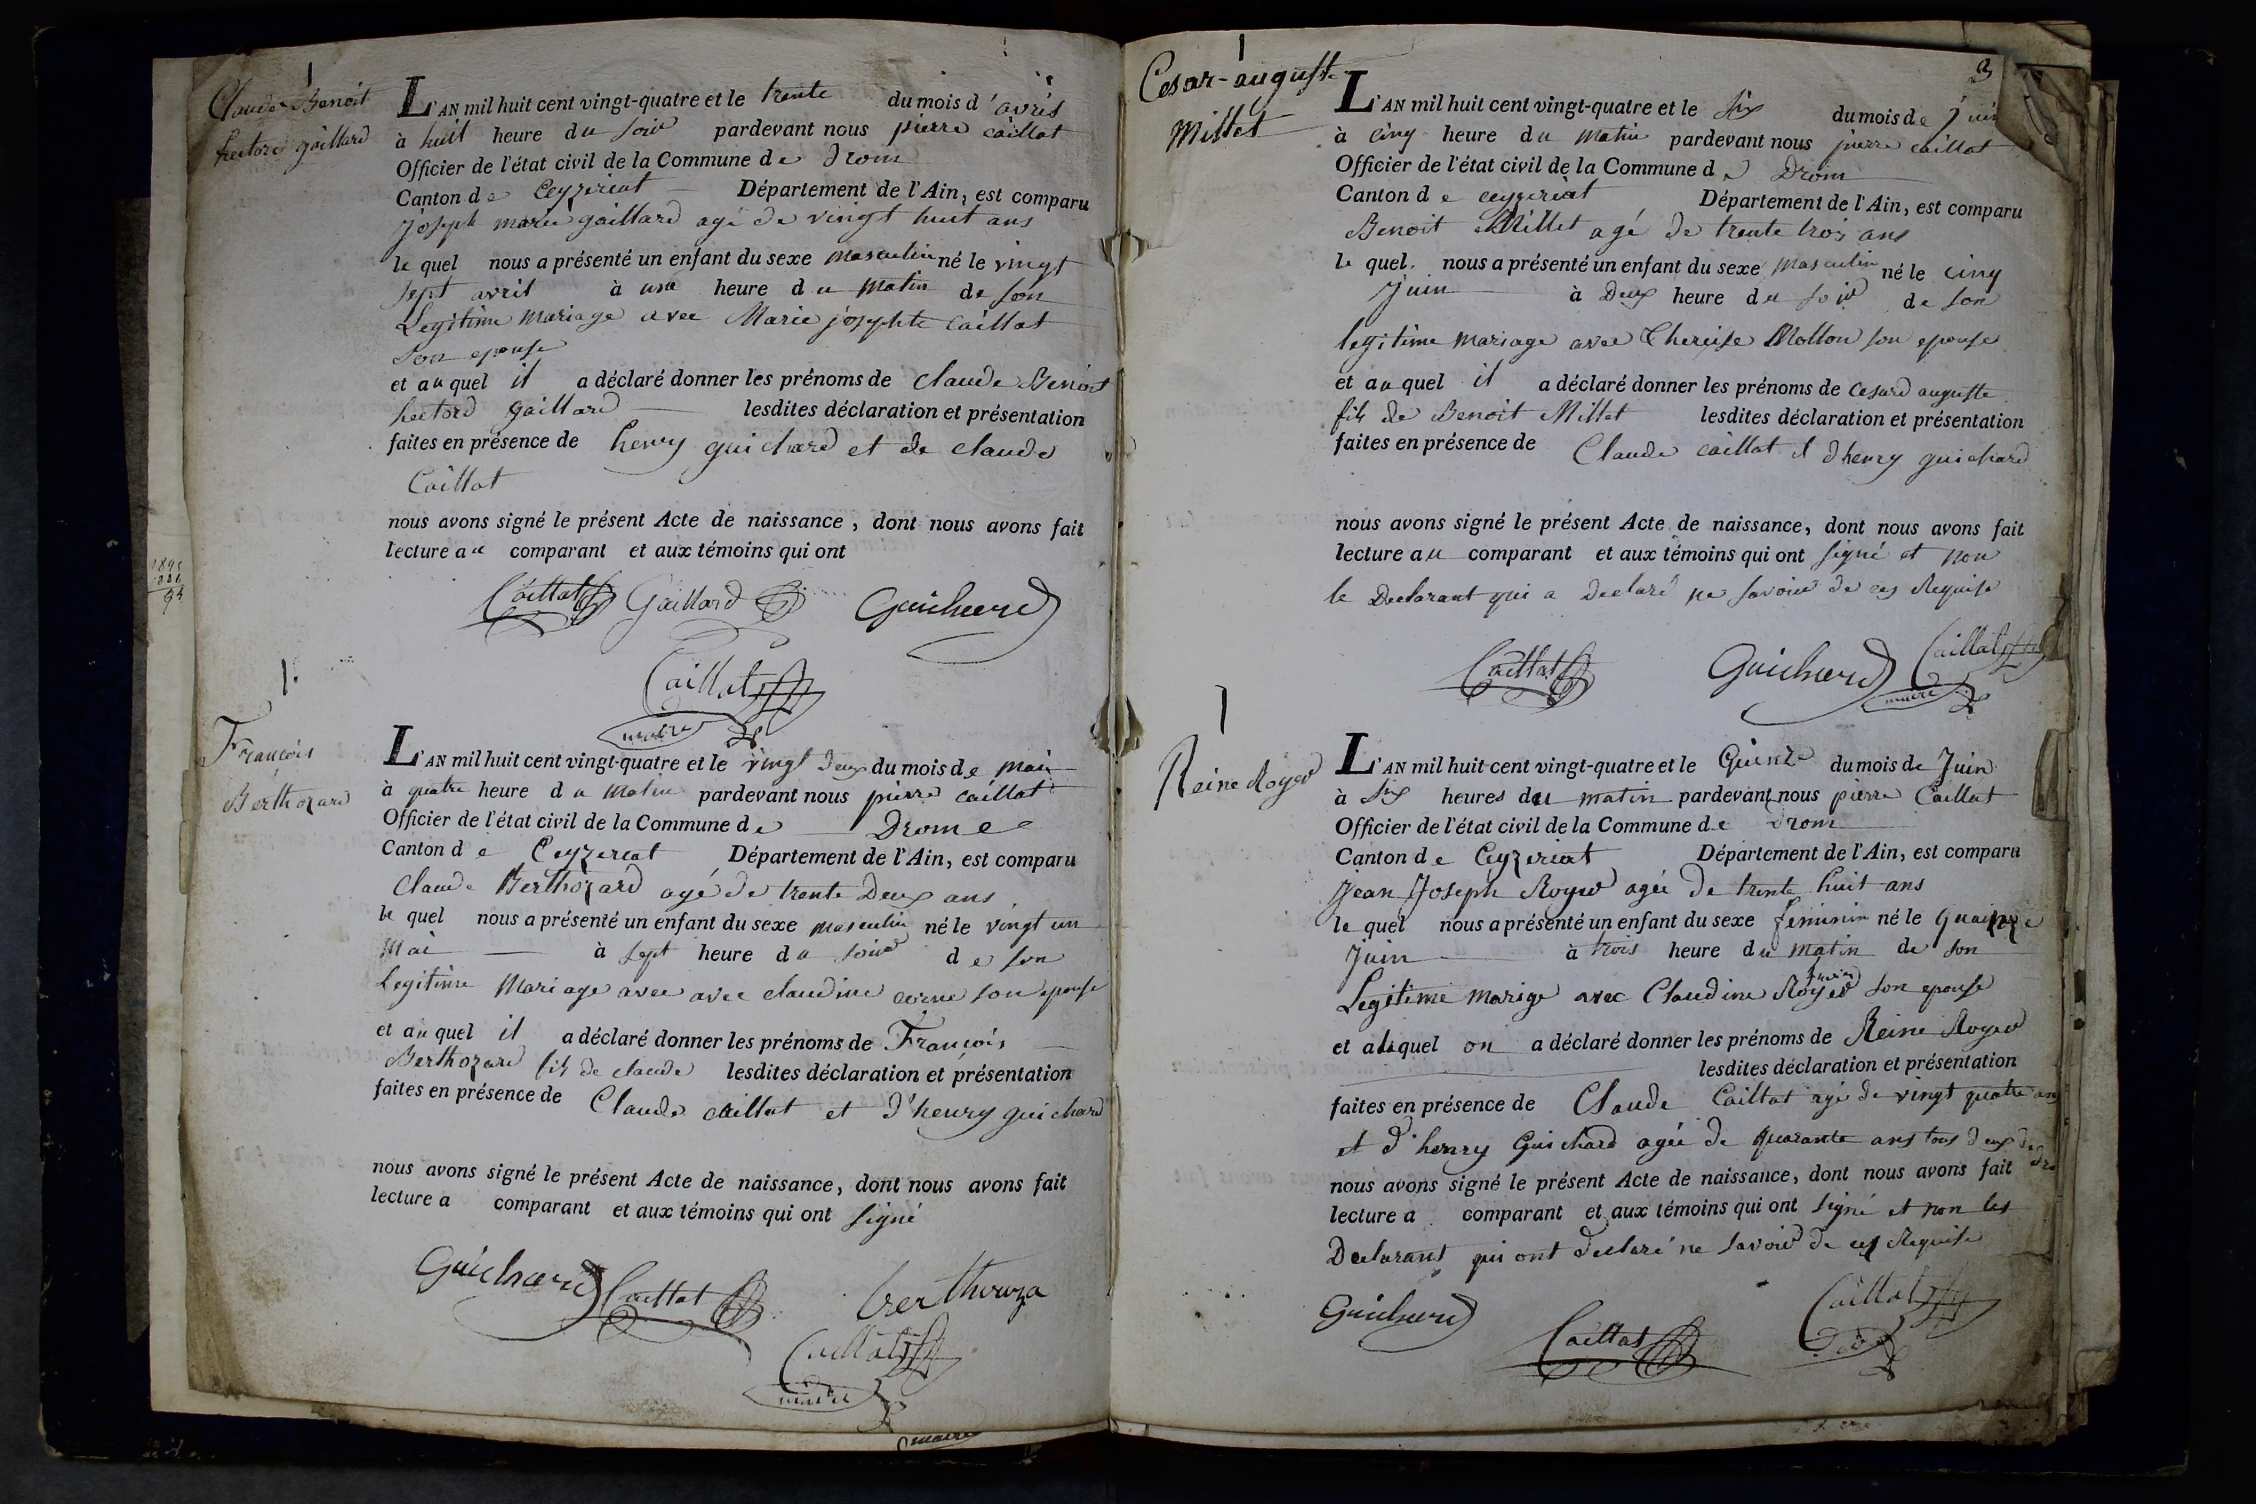 Claude Benoit
hectord gaillard
L'AN mil huit cent vingt-quatre et le trente du mois d'avril
à huit heure du soir pardevant nous pierre caillat
Officier de l'état civil de la Commune de Drom
Canton de Ceyzeriat Département de l'Ain, est comparu
joseph marie gaillard agé de vingt huit ans
le quel nous a présenté un enfant du sexe masculin né le vingt
sept avril à une heure du matin de son
Legitime mariage avec Marie josephte caillat
son epouse
et au quel il a déclaré donner les prénoms de claude Benoit
hectord gaillard lesdites déclaration et présentation
faites en présence de henry guichard et de claude
Caillat
nous avons signé le présent Acte de naissance, dont nous avons fait
lecture au comparant et aux témoins qui ont
Caillat Gaillard Guichard
Caillat
maire
François
Berthozard
L'AN mil huit cent vingt-quatre et le vingt deux du mois de mai
à quatre heure du matin pardevant nous pierre caillat
Officier de l'état civil de la Commune de Drome
Canton de Ceyzereat Département de l'Ain, est comparu
Claude Berthozard agé de trente Deux ans
le quel nous a présenté un enfant du sexe masculin né le vingt un
mai à sept heure du soir de son
Legitime Mariage avec avec claudine son epouse
et au quel il a déclaré donner les prénoms de François
Berthozard fils de claude lesdites déclaration et présentation
faites en présence de Claude caillat et d'henry guichard
nous avons signé le présent Acte de naissance, dont nous avons fait
lecture a comparant et aux témoins qui ont signé
Guichard Caillat
Caillat
maire
maire
3
Cesar-auguste
Millet
L'AN mil huit cent vingt-quatre et le six du mois de juin
à cinq heure du matin pardevant nous pierre caillat
Officier de l'état civil de la Commune de Drom
Canton de ceyzeriat Département de l'Ain, est comparu
Benoit Millet agé de trente trois ans
le quel nous a présenté un enfant du sexe masculin né le cinq
Juin à Deux heure du soir de son
legitime mariage avec Thereise Mollon son epouse
et au quel il a déclaré donner les prénoms de cesard auguste
fils de Benoit Millet lesdites déclaration et présentation
faites en présence de Claude caillat et dhenry guichard
nous avons signé le présent Acte de naissance, dont nous avons fait
lecture au comparant et aux témoins qui ont signé et non
le Declarant qui a declaré ne savoir de ces Requise
Caillat Guichard Caillat
maire
Reine Royer
L'AN mil huit cent vingt-quatre et le Quinze du mois de Juin
à six heures du matin pardevant nous pierre Caillat
Officier de l'état civil de la Commune de Drom
Canton de Ceyzeriat Département de l'Ain, est comparu
Jean Joseph Royer agée de trente huit ans
le quel nous a présenté un enfant du sexe feminin né le quainze
Juin à trois heure du matin de son
Legitime marige avec Claudine Royer son epouse
et alaquel on a déclaré donner les prénoms de Reine Royer
lesdites déclaration et présentation
faites en présence de Claude Caillat agé de vingt quatre ans
et d'henry Guichard agée de quarante ans tous deux de
nous avons signé le présent Acte de naissance, dont nous avons fait
lecture a comparant et aux témoins qui ont signé et non les
Declarant qui ont declaré ne savoir de ces Requise
Guichard Caillat Caillat